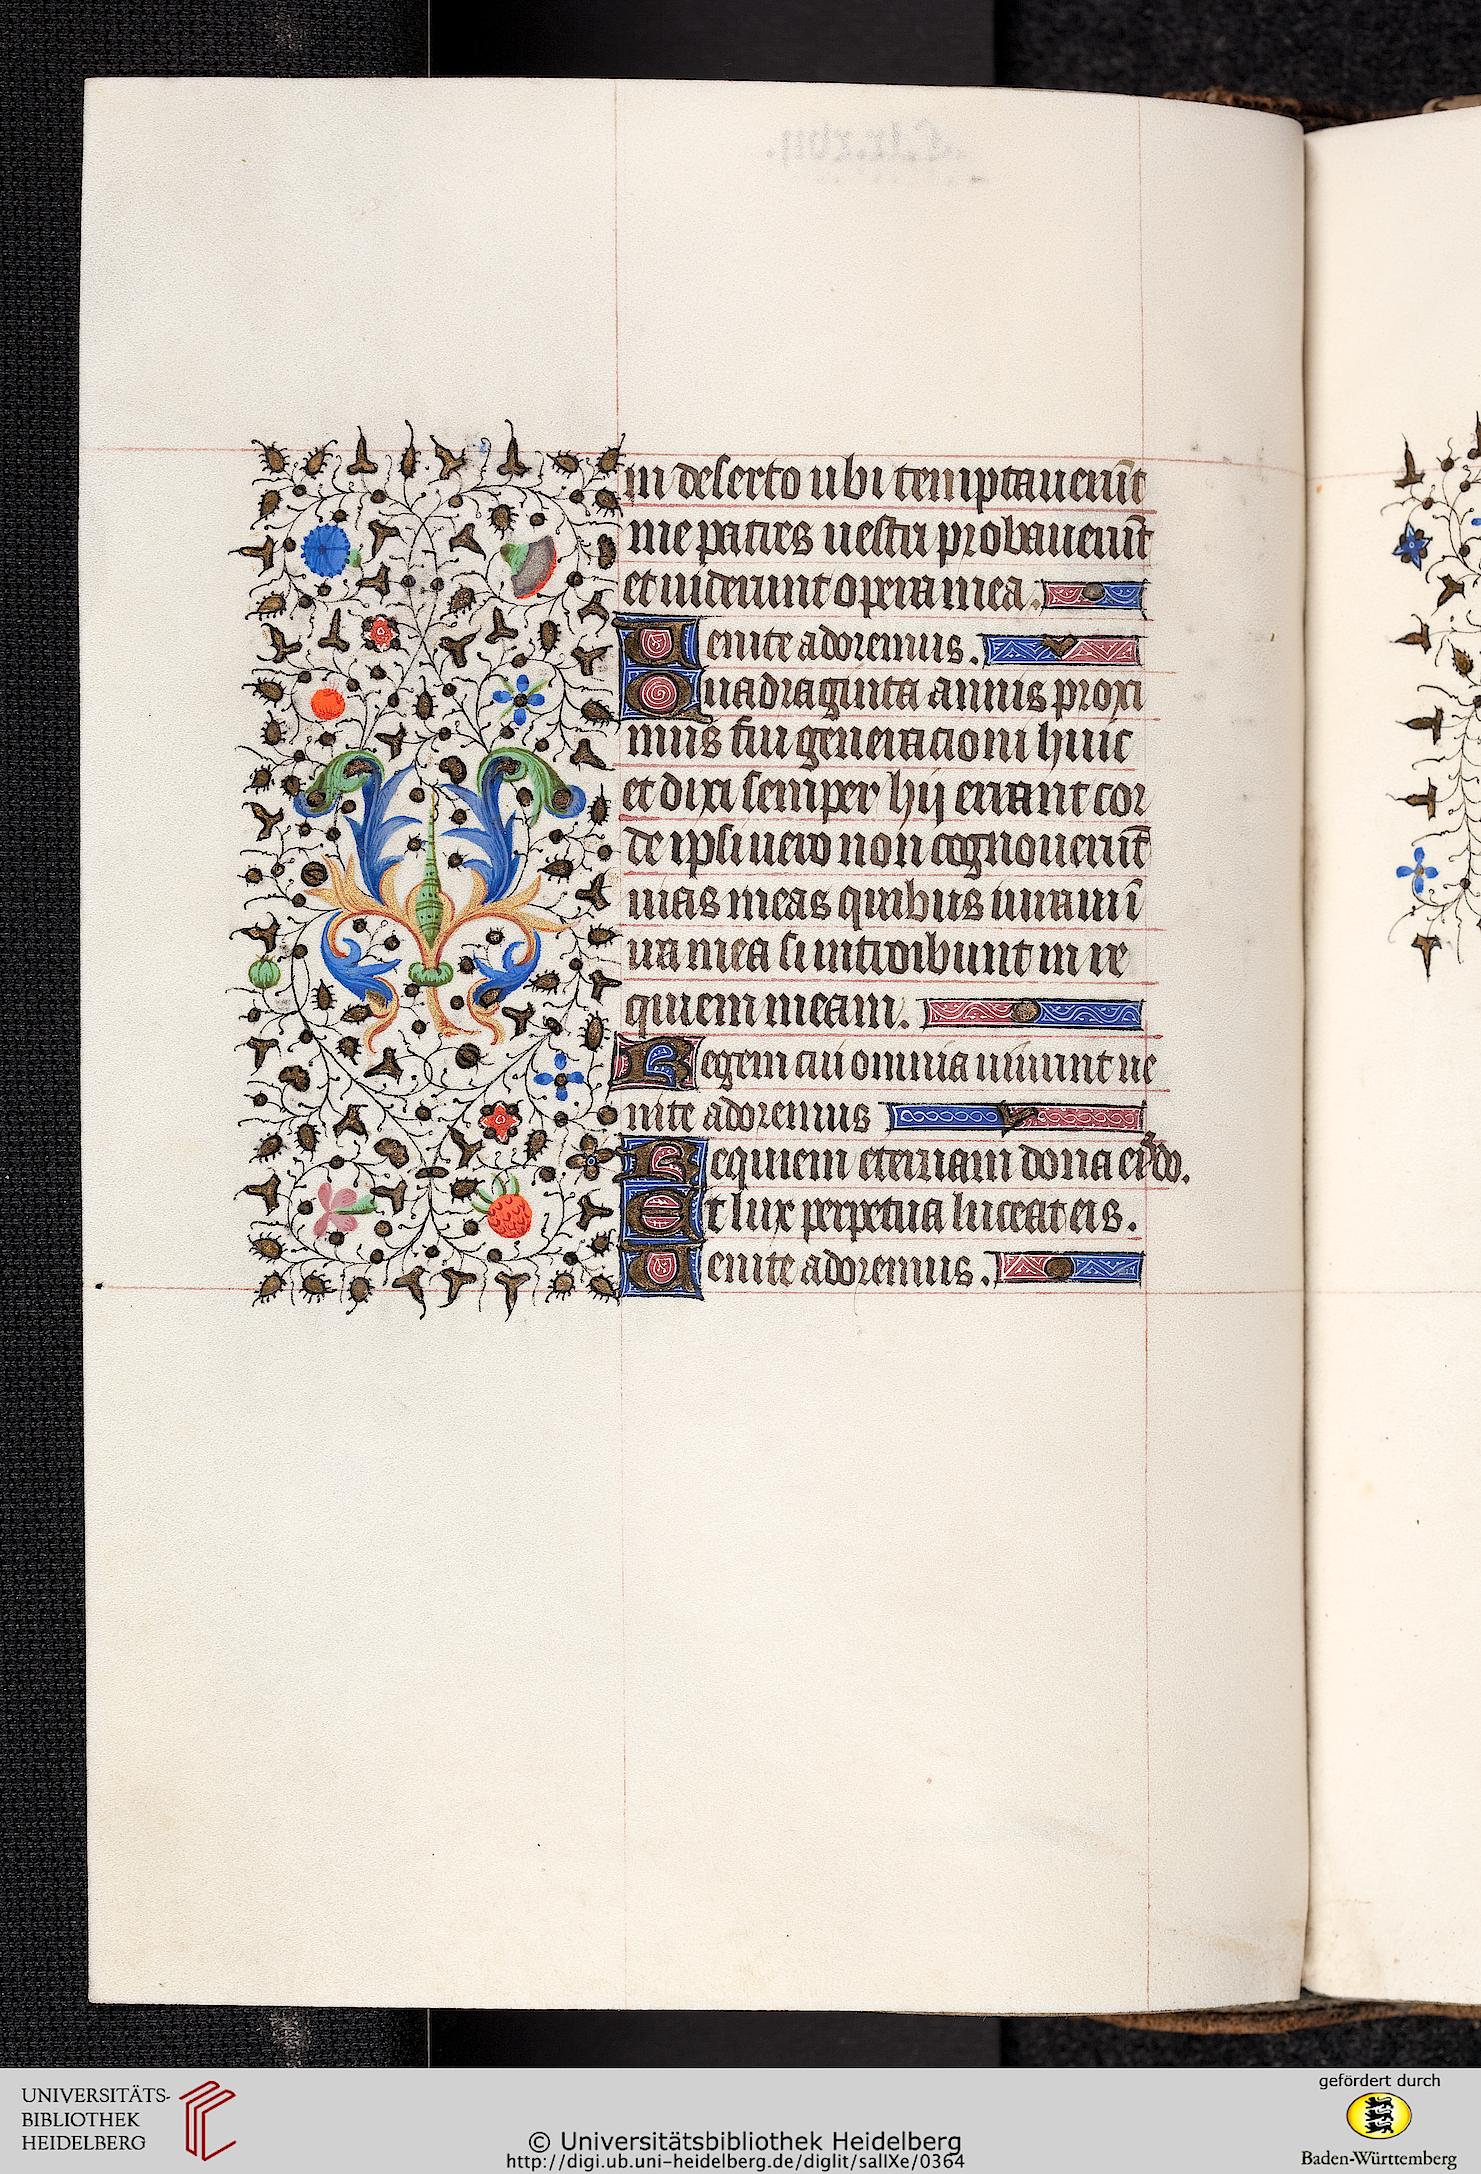 in deserto ubi temptaueru̅t
me patres uestri probaueru̅t
et uiderunt opera mea.
Uenite adoremus.
Quadraginta annis proxi
mus fui generacioni huic
et dixi semper hij errant cor
de ipsi uero non cognoueru̅t
uias meas quibus iuraui i̅
ira mea si introibunt in re
quiem meam.
Regem cui omnia uiuunt ue
nite adoremus
Requiem eternam dona eis do.
Et lux perpetua luceat eis.
Uenite adoremus.
UNIVERSITÄTS-
BIBLIOTHEK
HEIDELBERG
© Universitätsbibliothek Heidelberg
http://digi.ub.uni-heidelberg.de/diglit/salIXe/0364
gefördert durch
Baden-Württemberg